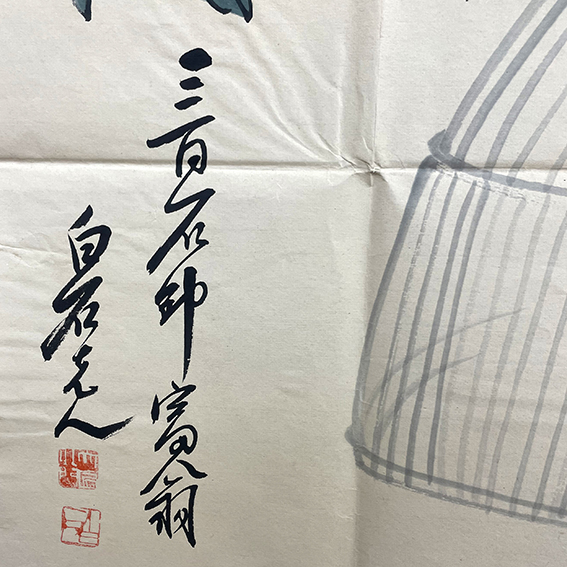 三百石印富翁
白石老人